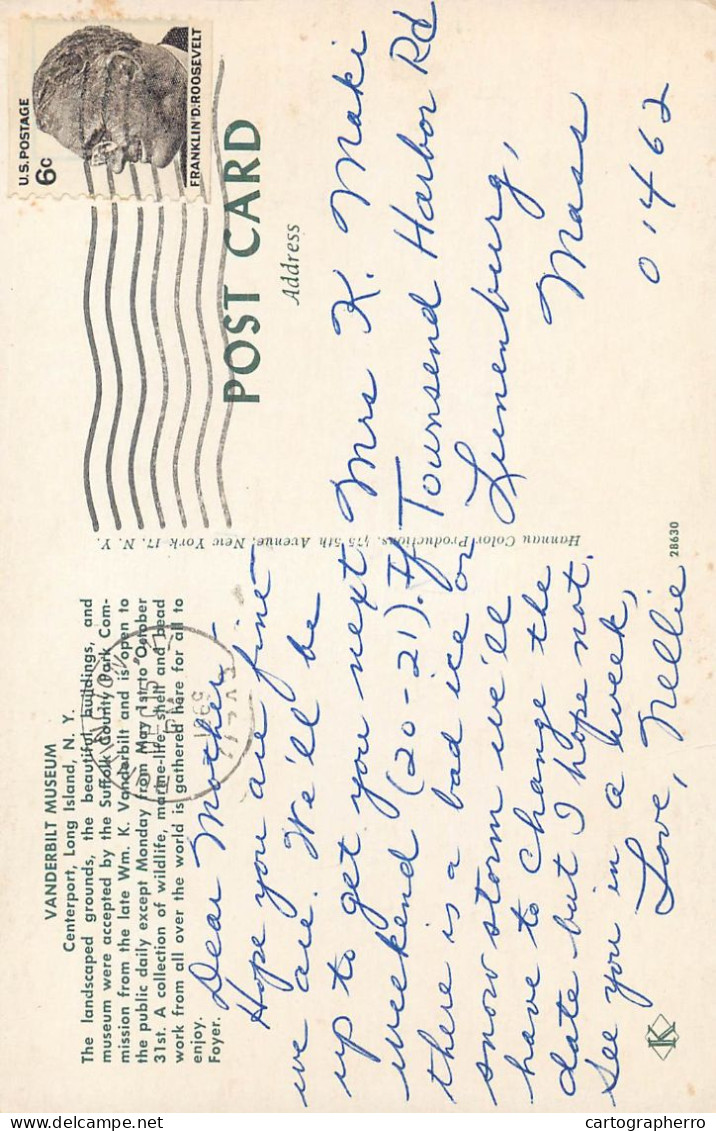 VANDERBILT MUSEUM
Centerport, Long Island, N. Y.
The landscaped grounds, the beautiful buildings, and
museum were accepted by the Suffolk County Park Com-
mission from the late Wm. K. Vanderbilt and is open to
the public daily except Monday from May 1st to October
31st. A collection of wildlife, marine-life, shell and bead
work from all over the world is gathered here for all to
enjoy.
Foyer.
Dear Mother,
Hope you are fine
we are. We'll be
up to get you next
weekend (20-21). If
there is a bad ice or
snow storm we'll
have to change the
date but I hope not.
See you in a week,
Love, Nellie
K
Hannau Color Productions, 475 5th Avenue, New York 17, N. Y.
28630
U.S. POSTAGE
6c
FRANKLIN D. ROOSEVELT
POST CARD
Address
Mrs K. Maki
Townsend Harbor Rd
Lunenburg,
Mass
01462
delcampe.net
cartographerro